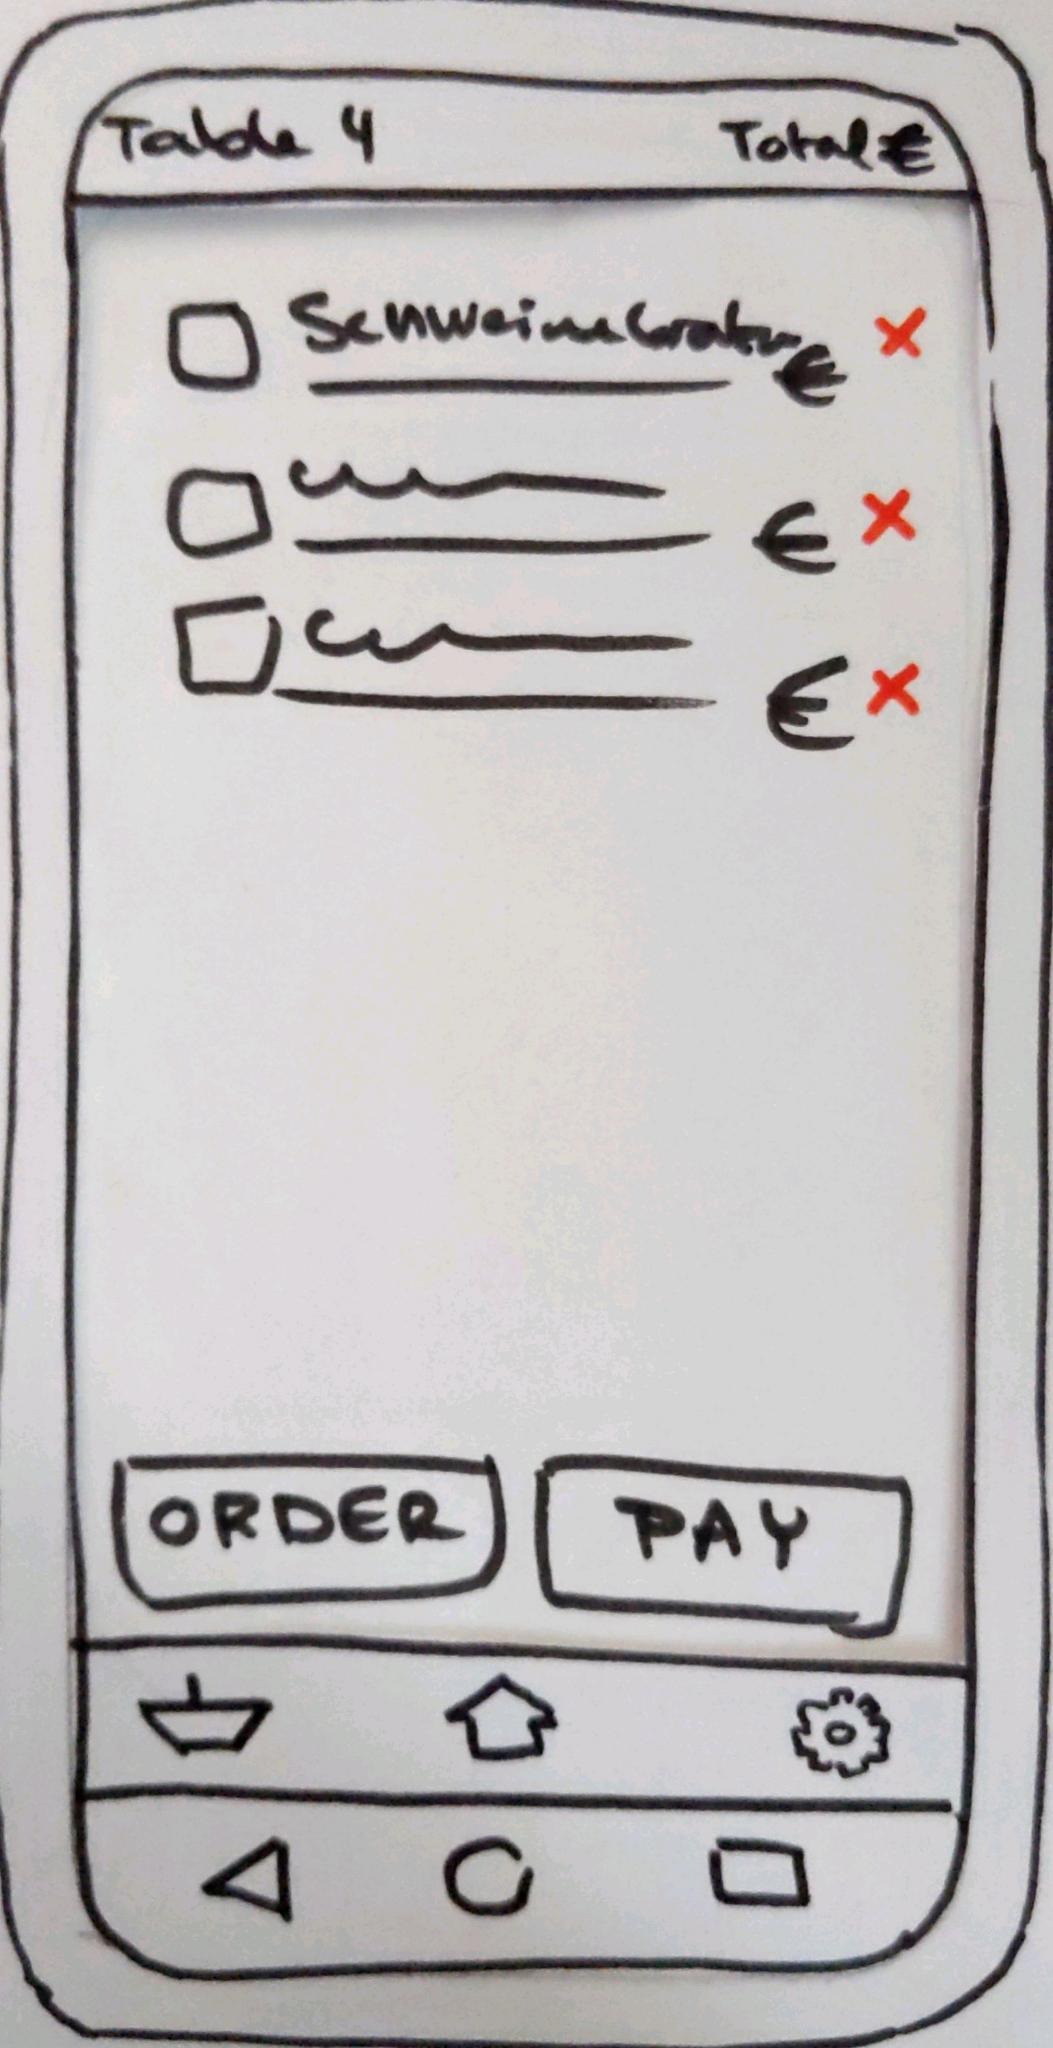 Table 4 Total €
Schweinebraten €
€
€
ORDER PAY